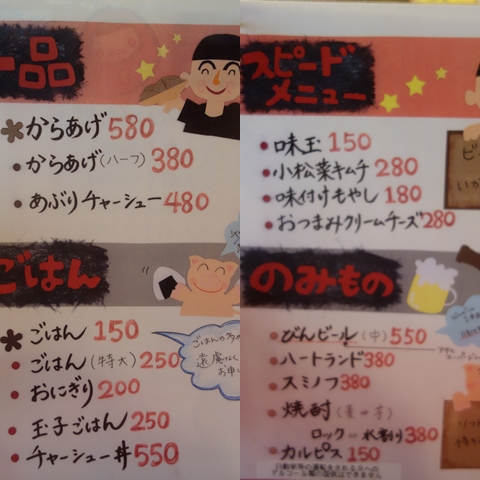 一品
からあげ 580
からあげ(ハーフ) 380
あぶりチャーシュー 480
ごはん
ごはん 150
ごはん(特大) 250
おにぎり 200
玉子ごはん 250
チャーシュー丼 550
スピード
メニュー
味玉 150
小松菜キムチ 280
味付けもやし 180
おつまみクリームチーズ 280
のみもの
びんビール(中) 550
ハートランド 380
スミノフ 380
焼酎(麦・芋)
ロック・水割り 380
カルピス 150
自動車等の運転をされる方への
アルコール類の提供はできません